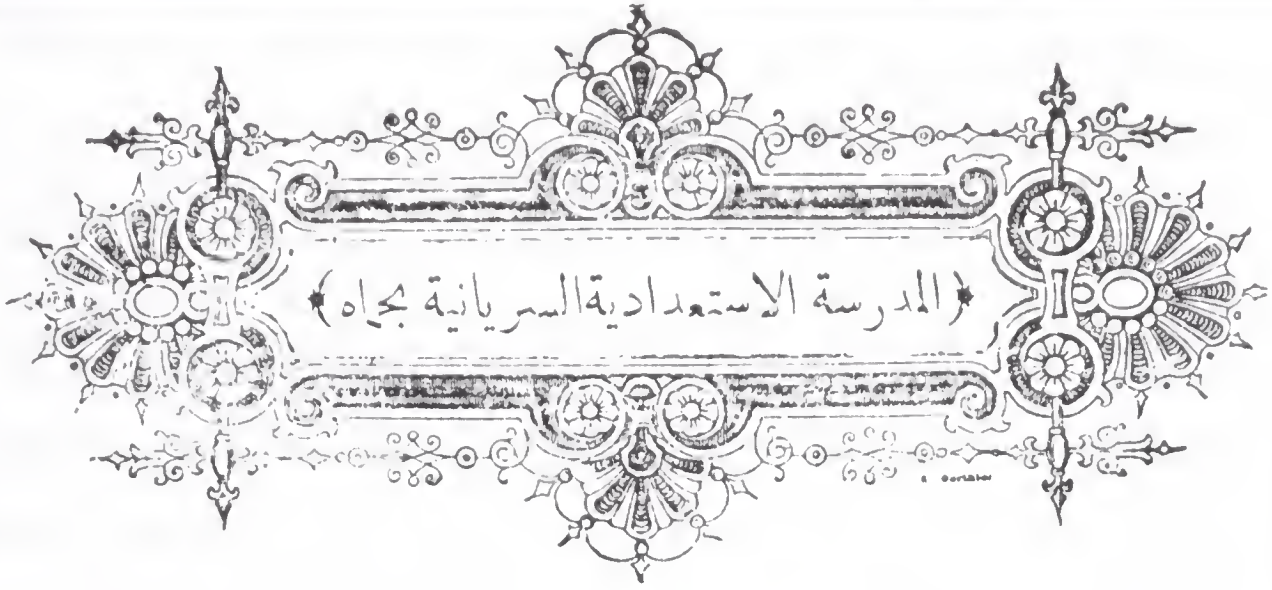 ﴿ المدرسة الاستعدادية السريانية بحماه ﴾